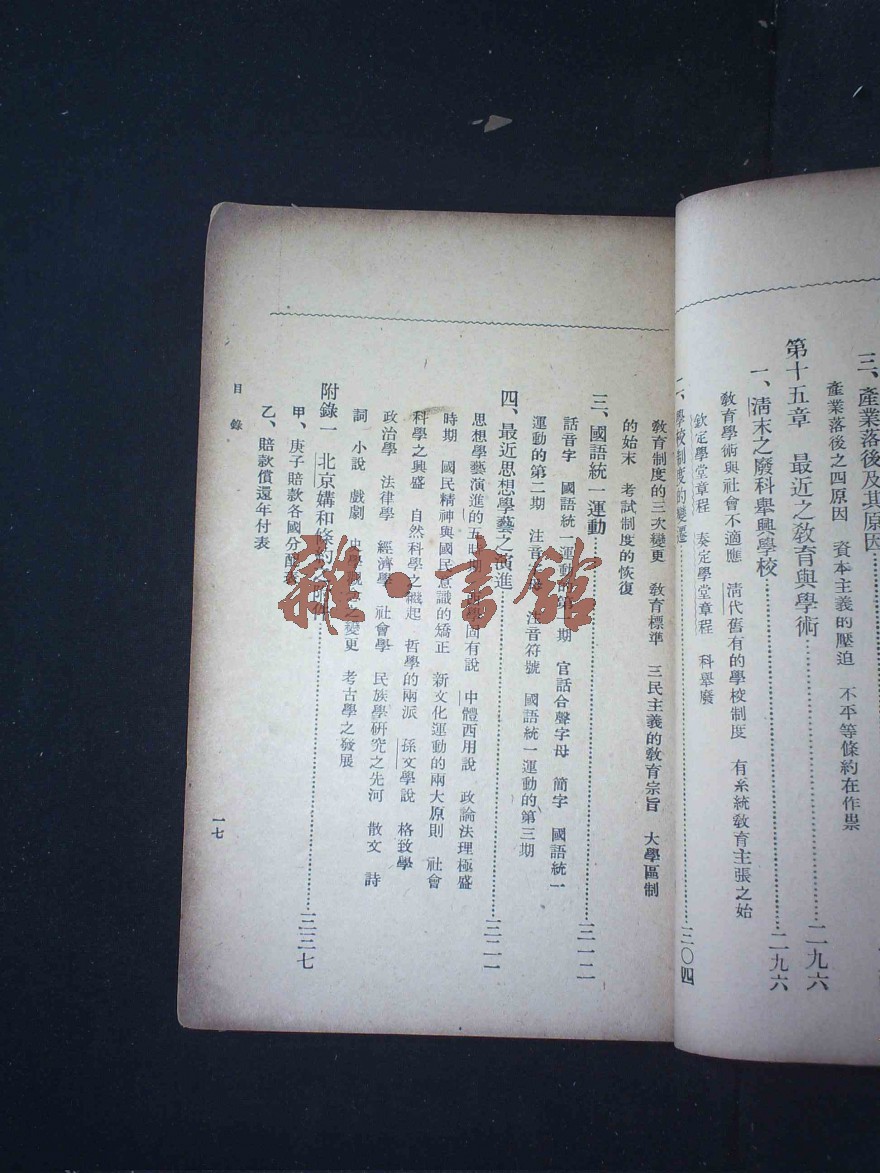 三、產業落後及其原因
產業落後之四原因　資本主義的壓迫　不平等條約在作祟
第十五章　最近之教育與學術……二九六
一、清末之廢科舉興學校……二九六
教育學術與社會不適應　清代舊有的學校制度　有系統教育主張之始
欽定學堂章程　奏定學堂章程　科舉廢
二、學校制度的變遷……三〇四
教育制度的三次變更　教育標準　三民主義的教育宗旨　大學區制
的始末　考試制度的恢復
三、國語統一運動……三一二
話音字　國語統一運動的第一期　官話合聲字母　簡字　國語統一
運動的第二期　注音字母　注音符號　國語統一運動的第三期
四、最近思想學藝之演進……三二一
思想學藝演進的五時期　固有說　中體西用說　政論法理極盛
時期　國民精神與國民意識的矯正　新文化運動的兩大原則　社會
科學之興盛　自然科學之繼起　哲學的兩派　孫文學說　格致學
政治學　法律學　經濟學　社會學　民族學研究之先河　散文　詩
詞　小說　戲劇　史學觀念之變更　考古學之發展
附錄一　北京媾和條約各附件……三三七
甲、庚子賠款各國分配表
乙、賠款償還年付表
目錄
一七
雜·書館